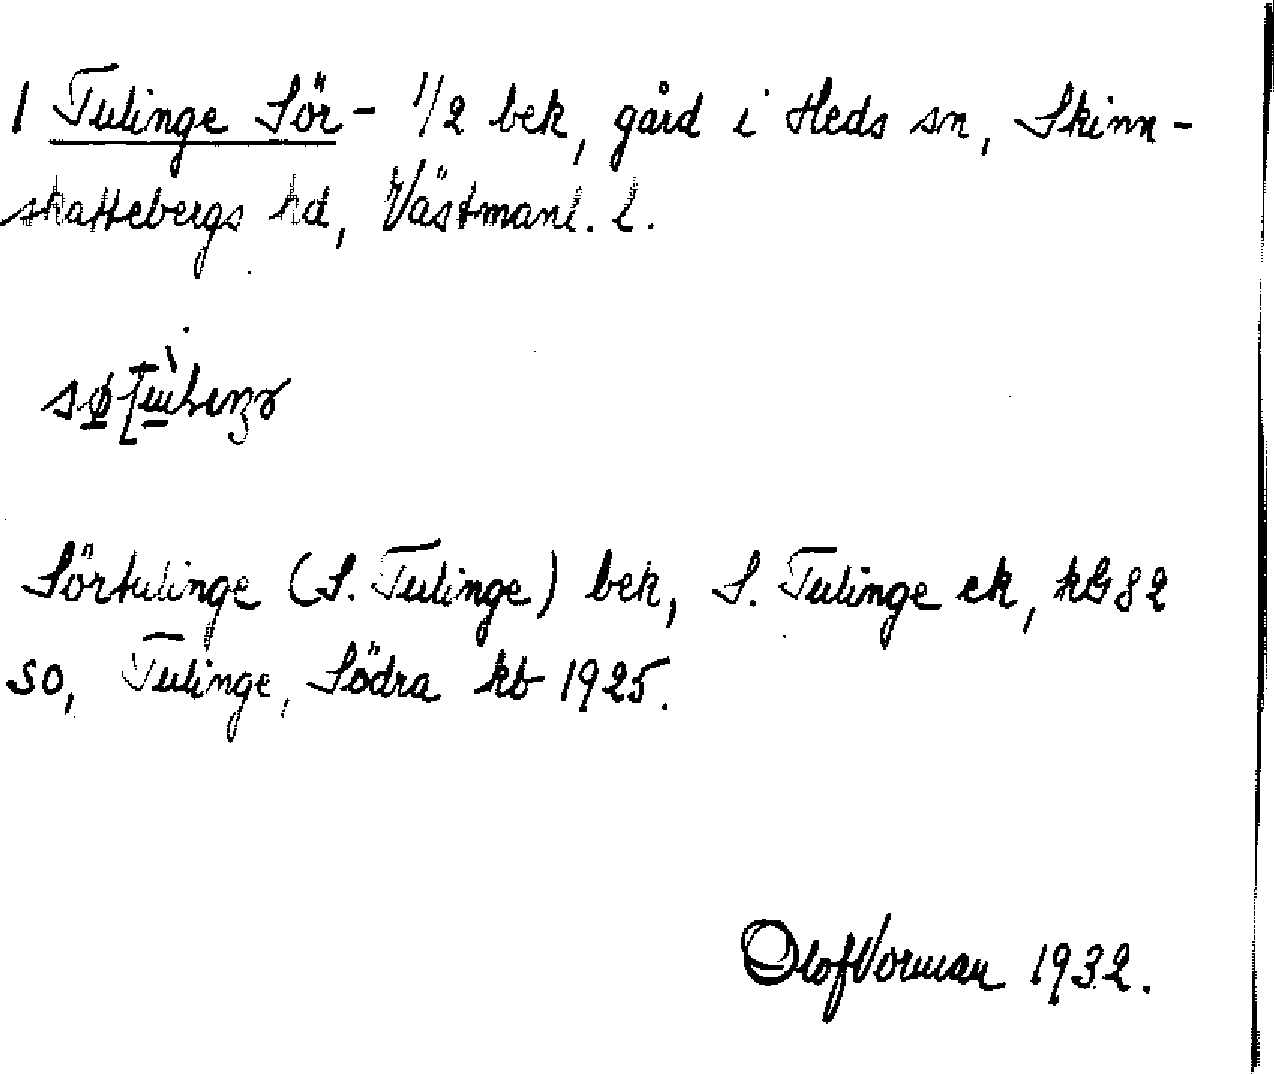 1 Tulinge Sör- 1/2 bek, gård i Heds sn, Skinn-
skattebergs hd, Västmanl. l.
Sörtulinge (S. Tulinge) bek, S. Tulinge ek, kG82
SO, Tulinge, Södra kb 1925.
Olof Vorman 1932.